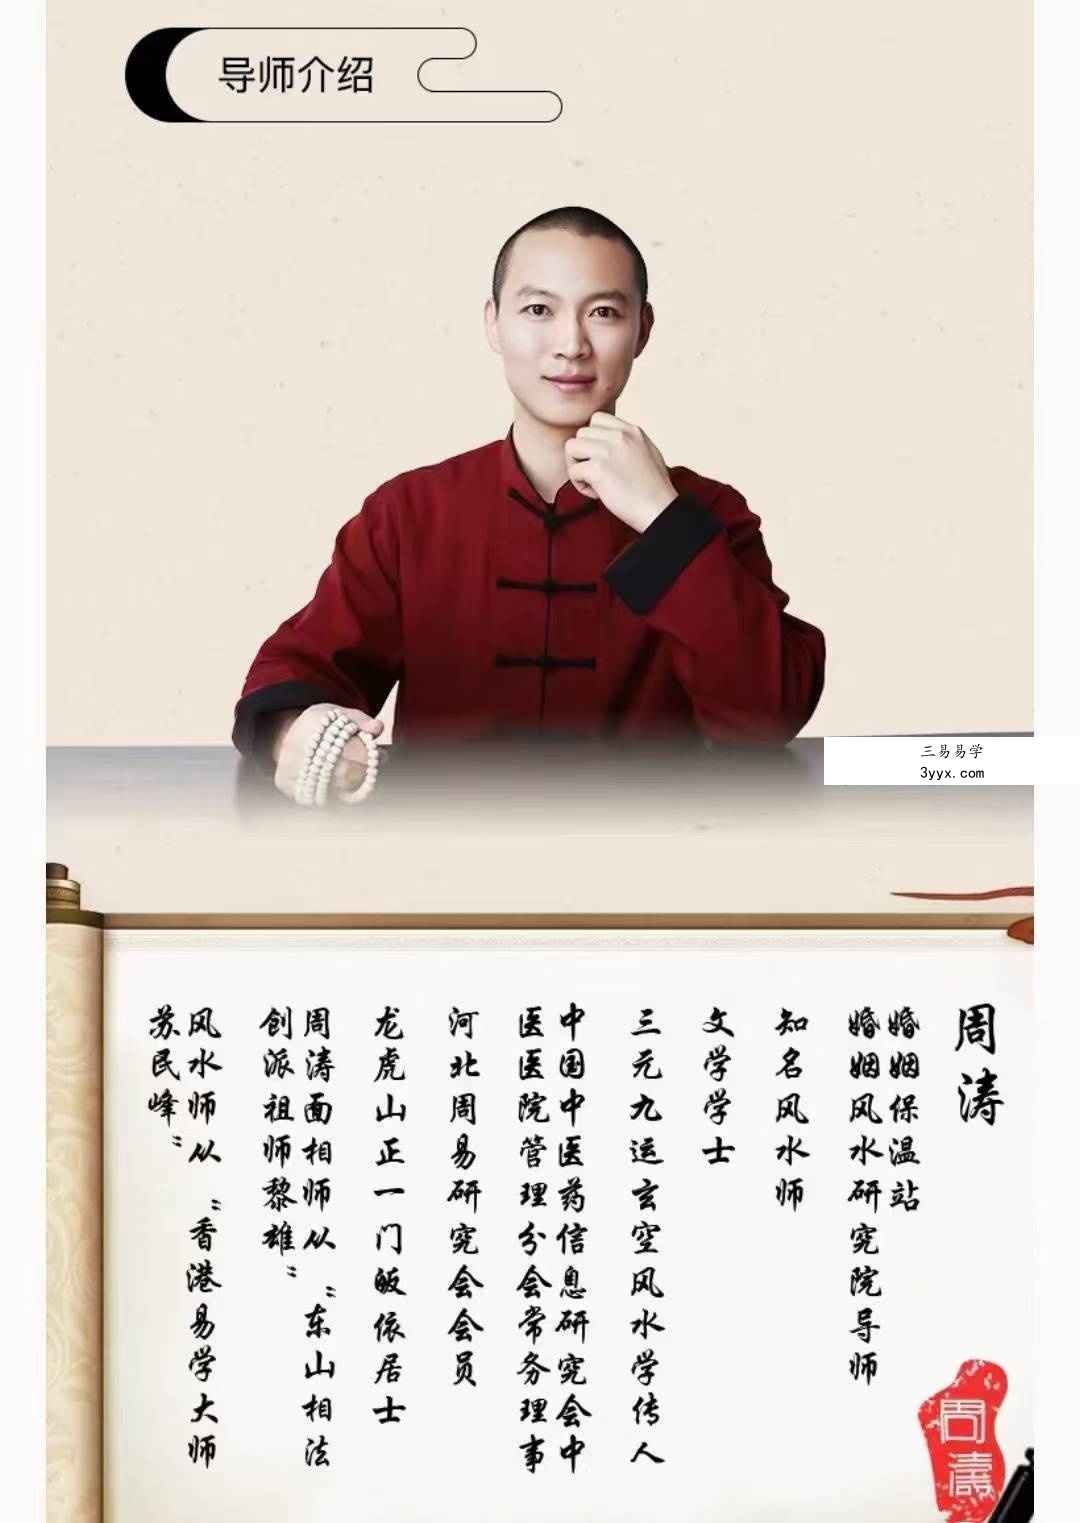 导师介绍
三易易学
3yyx.com
周涛
婚姻保温站
婚姻风水研究院导师
知名风水师
文学学士
三元九运玄空风水学传人
中国中医药信息研究会中
医医院管理分会常务理事
河北周易研究会会员
龙虎山正一门皈依居士
周涛面相师从“东山相法
创派祖师黎雄”
风水师从“香港易学大师
苏民峰”
周濤